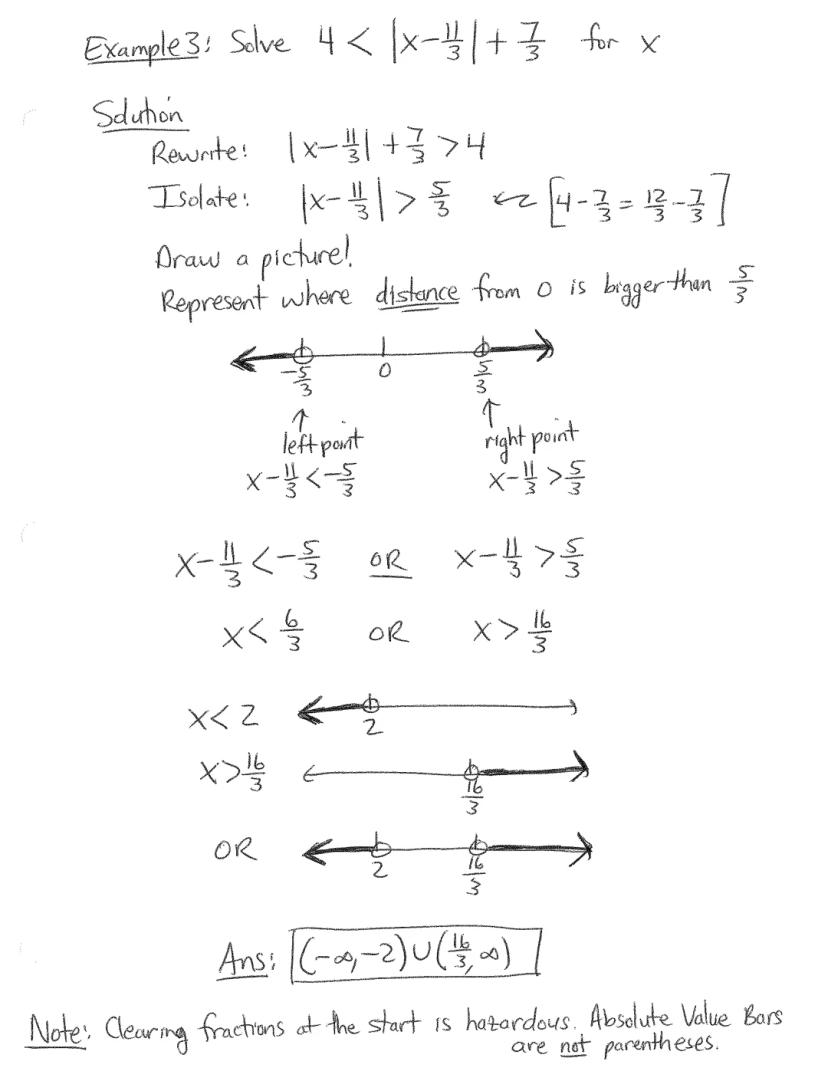 Example 3: Solve 4 < |x - 11/3| + 7/3 for x
Solution
Rewrite: |x - 11/3| + 7/3 > 4
Isolate: |x - 11/3| > 5/3 ⇜ [4 - 7/3 = 12/3 - 7/3]
Draw a picture!
Represent where distance from 0 is bigger than 5/3
-5/3 0 5/3
↑ ↑
left point right point
x - 11/3 < -5/3 x - 11/3 > 5/3
x - 11/3 < -5/3 OR x - 11/3 > 5/3
x < 6/3 OR x > 16/3
x < 2
2
x > 16/3
16/3
OR
2 16/3
Ans: (-∞, -2) ∪ (16/3, ∞)
Note: Clearing fractions at the start is hazardous. Absolute Value Bars
are not parentheses.